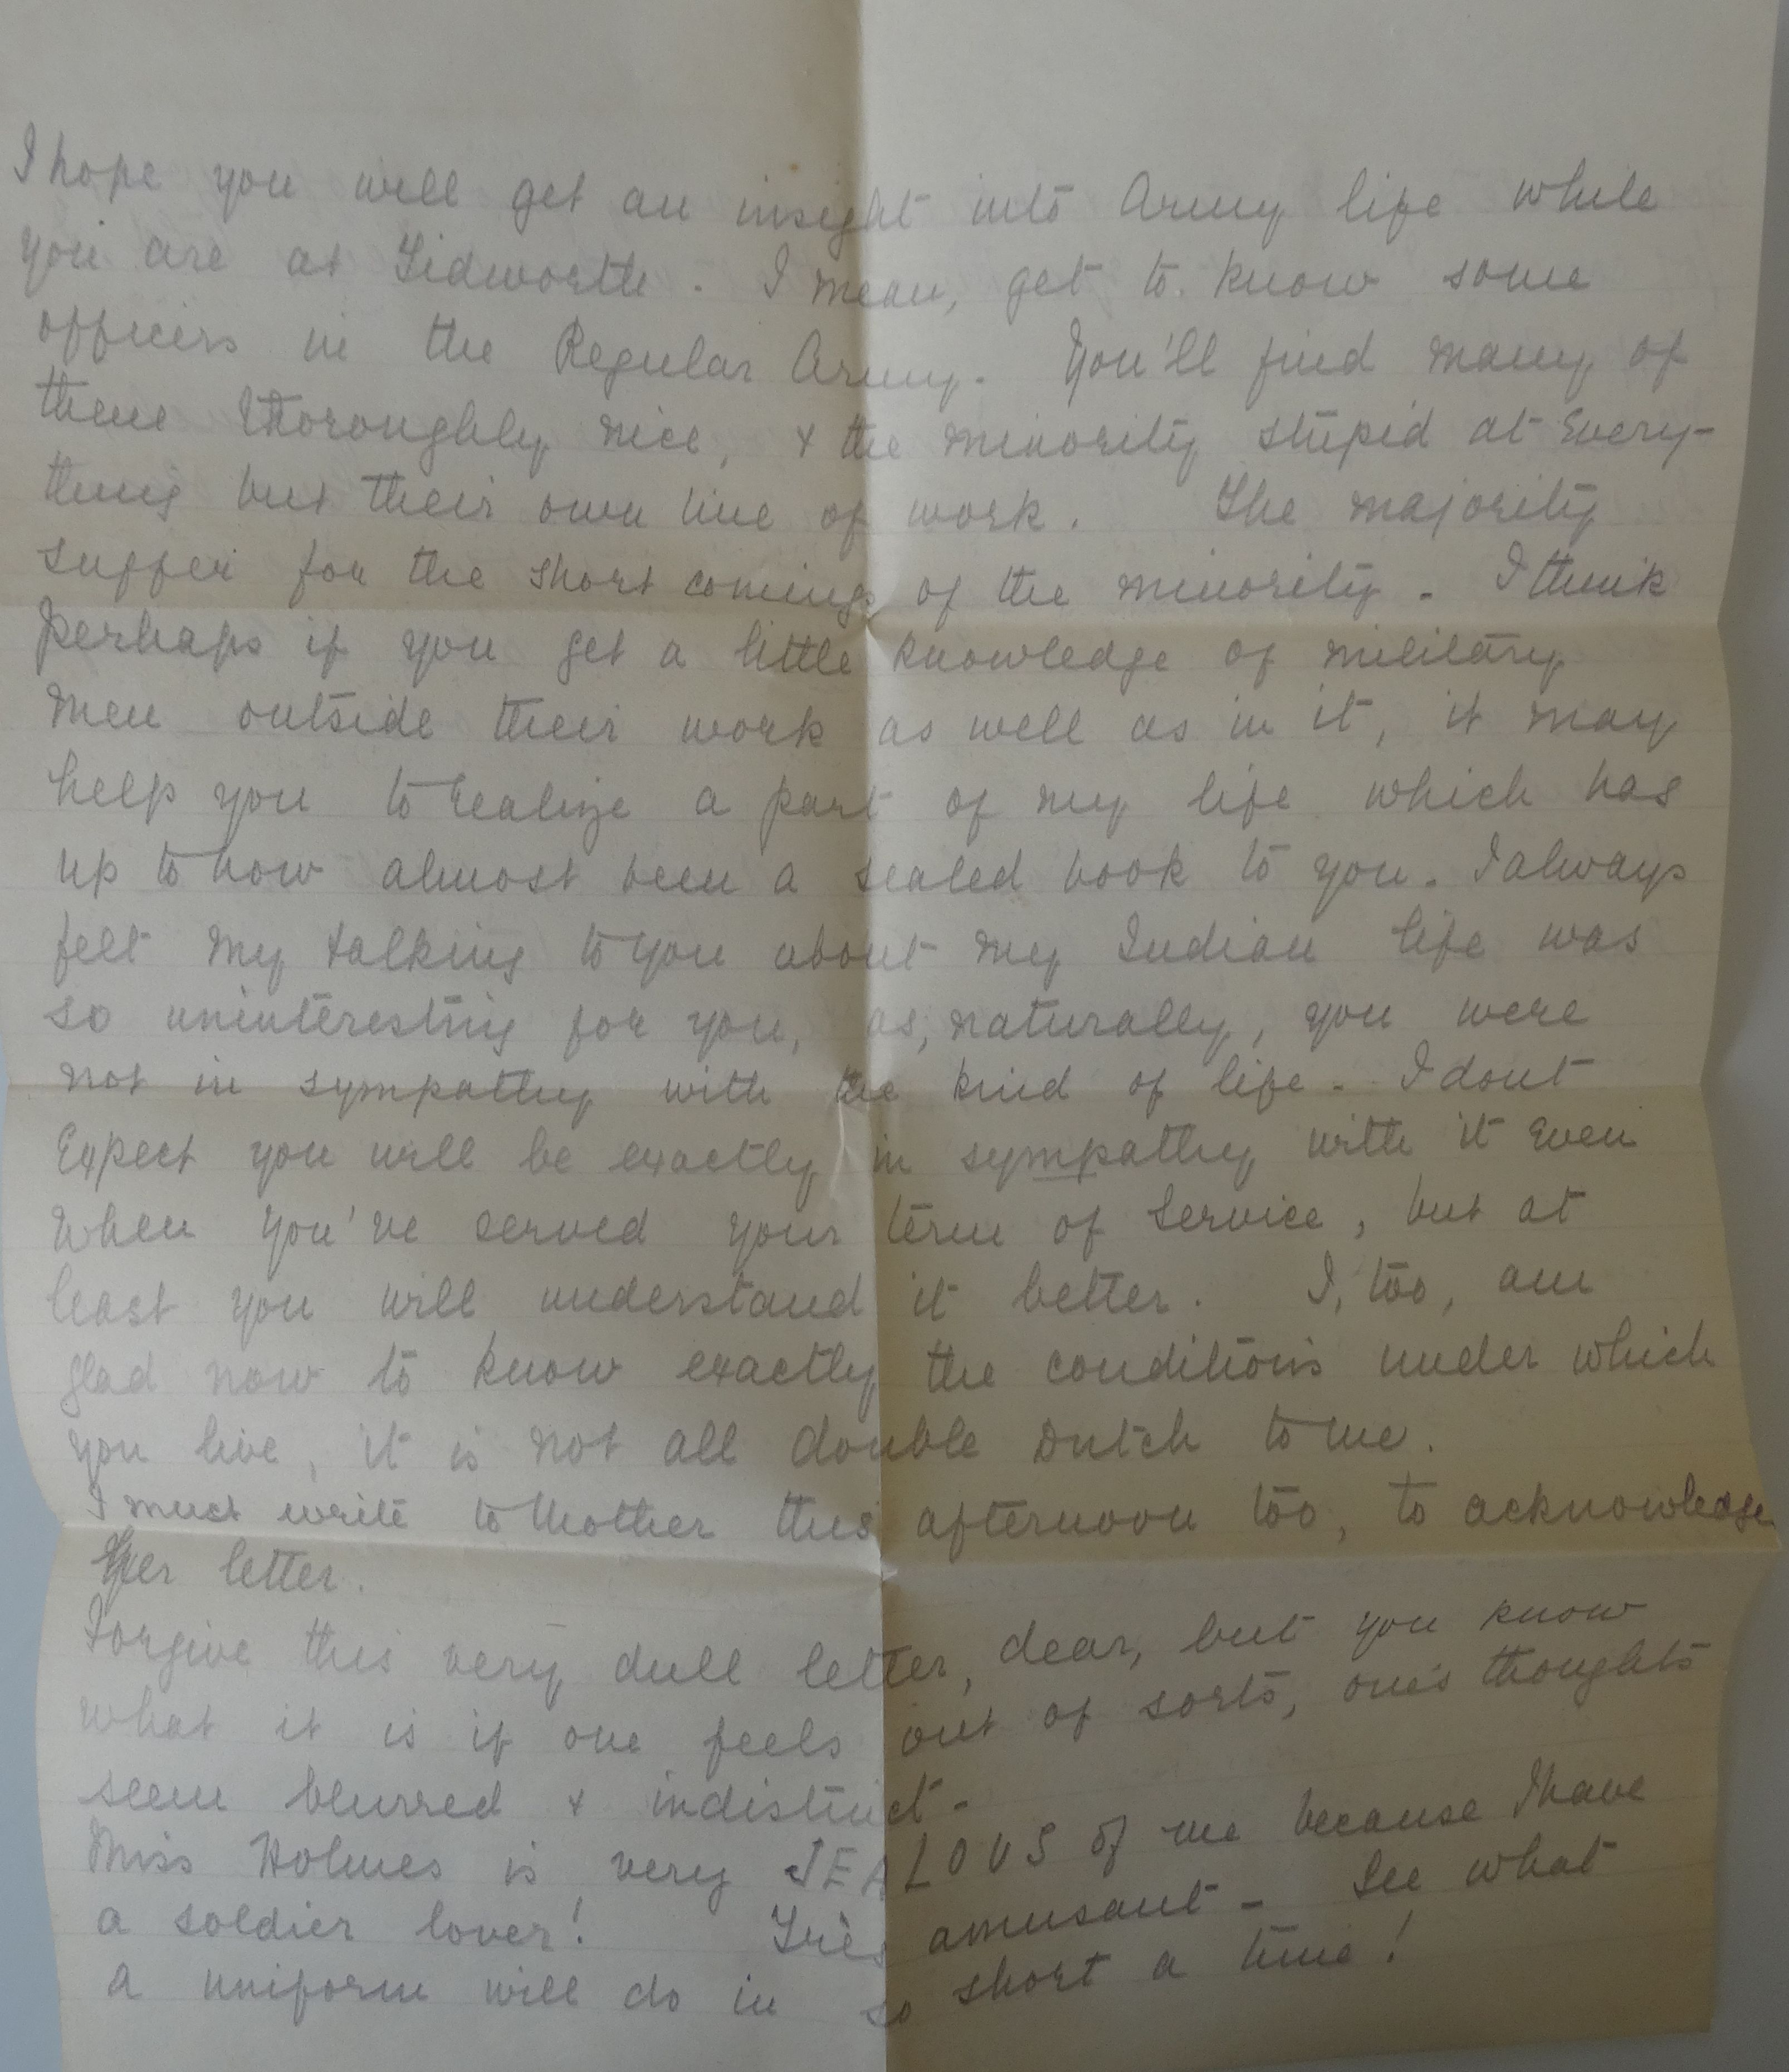 I hope you will get an insight into Army life while
you are at Tidworth. I mean, get to know some
officers in the Regular Army. You'll find many of
them thoroughly nice, & the minority stupid at every-
thing but their own line of work. The majority
suffer for the short comings of the minority. I think
perhaps if you get a little knowledge of military
men outside their work as well as in it, it may
help you to realize a part of my life which has
up to now almost been a sealed book to you. I always
felt my talking to you about my Indian life was
so uninteresting for you, as, naturally, you were
not in sympathy with the kind of life. I dont
expect you will be exactly in sympathy with it even
when you've served your term of service, but at
least you will understand it better. I, too, am
glad now to know exactly the conditions under which
you live, it is not all double Dutch to me.
I must write to Mother this afternoon too, to acknowledge
Her letter.
Forgive this very dull letter, dear, but you know
what it is if one feels out of sorts, one's thoughts
seem blurred & indistinct.
Miss Holmes is very JEALOUS of me because I have
a soldier lover! Très amusant - See what
a uniform will do in so short a time!